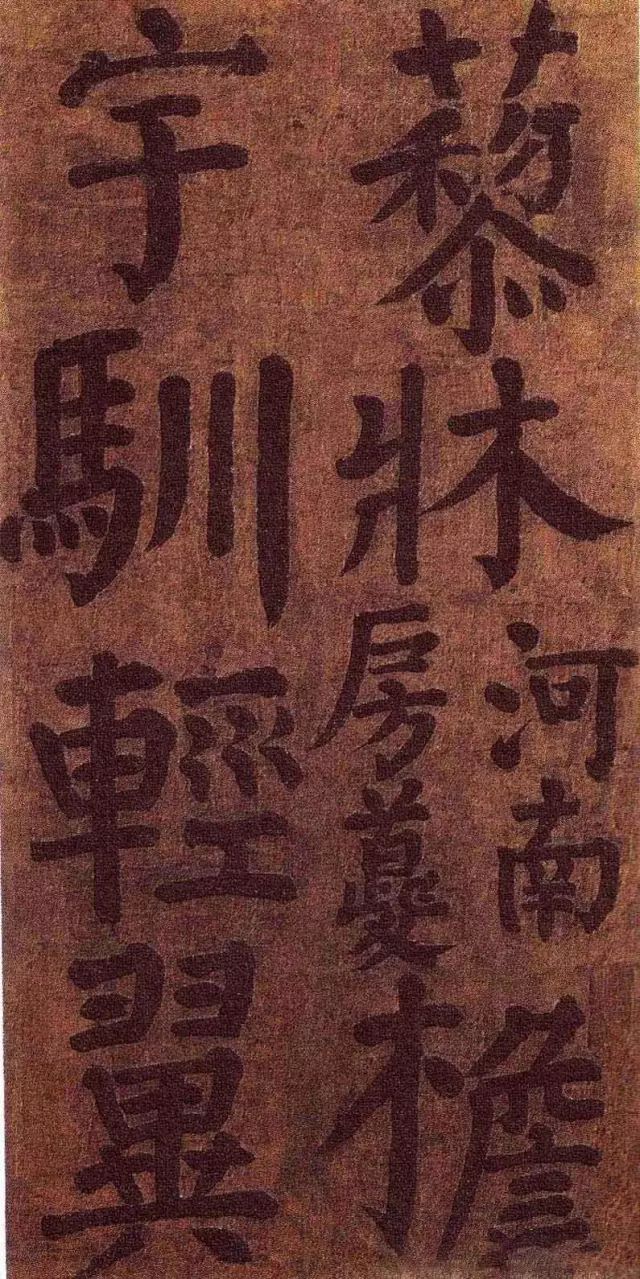 藜牀
河南
房夔
檐
宇馴輕翼